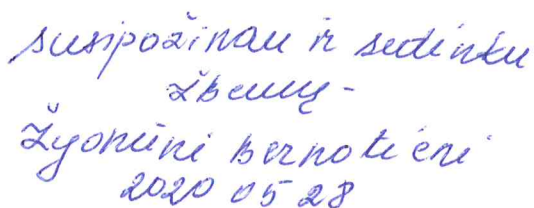 susipažinau ir sutinku
Žygimūnė Bernotienė
2020 05 28